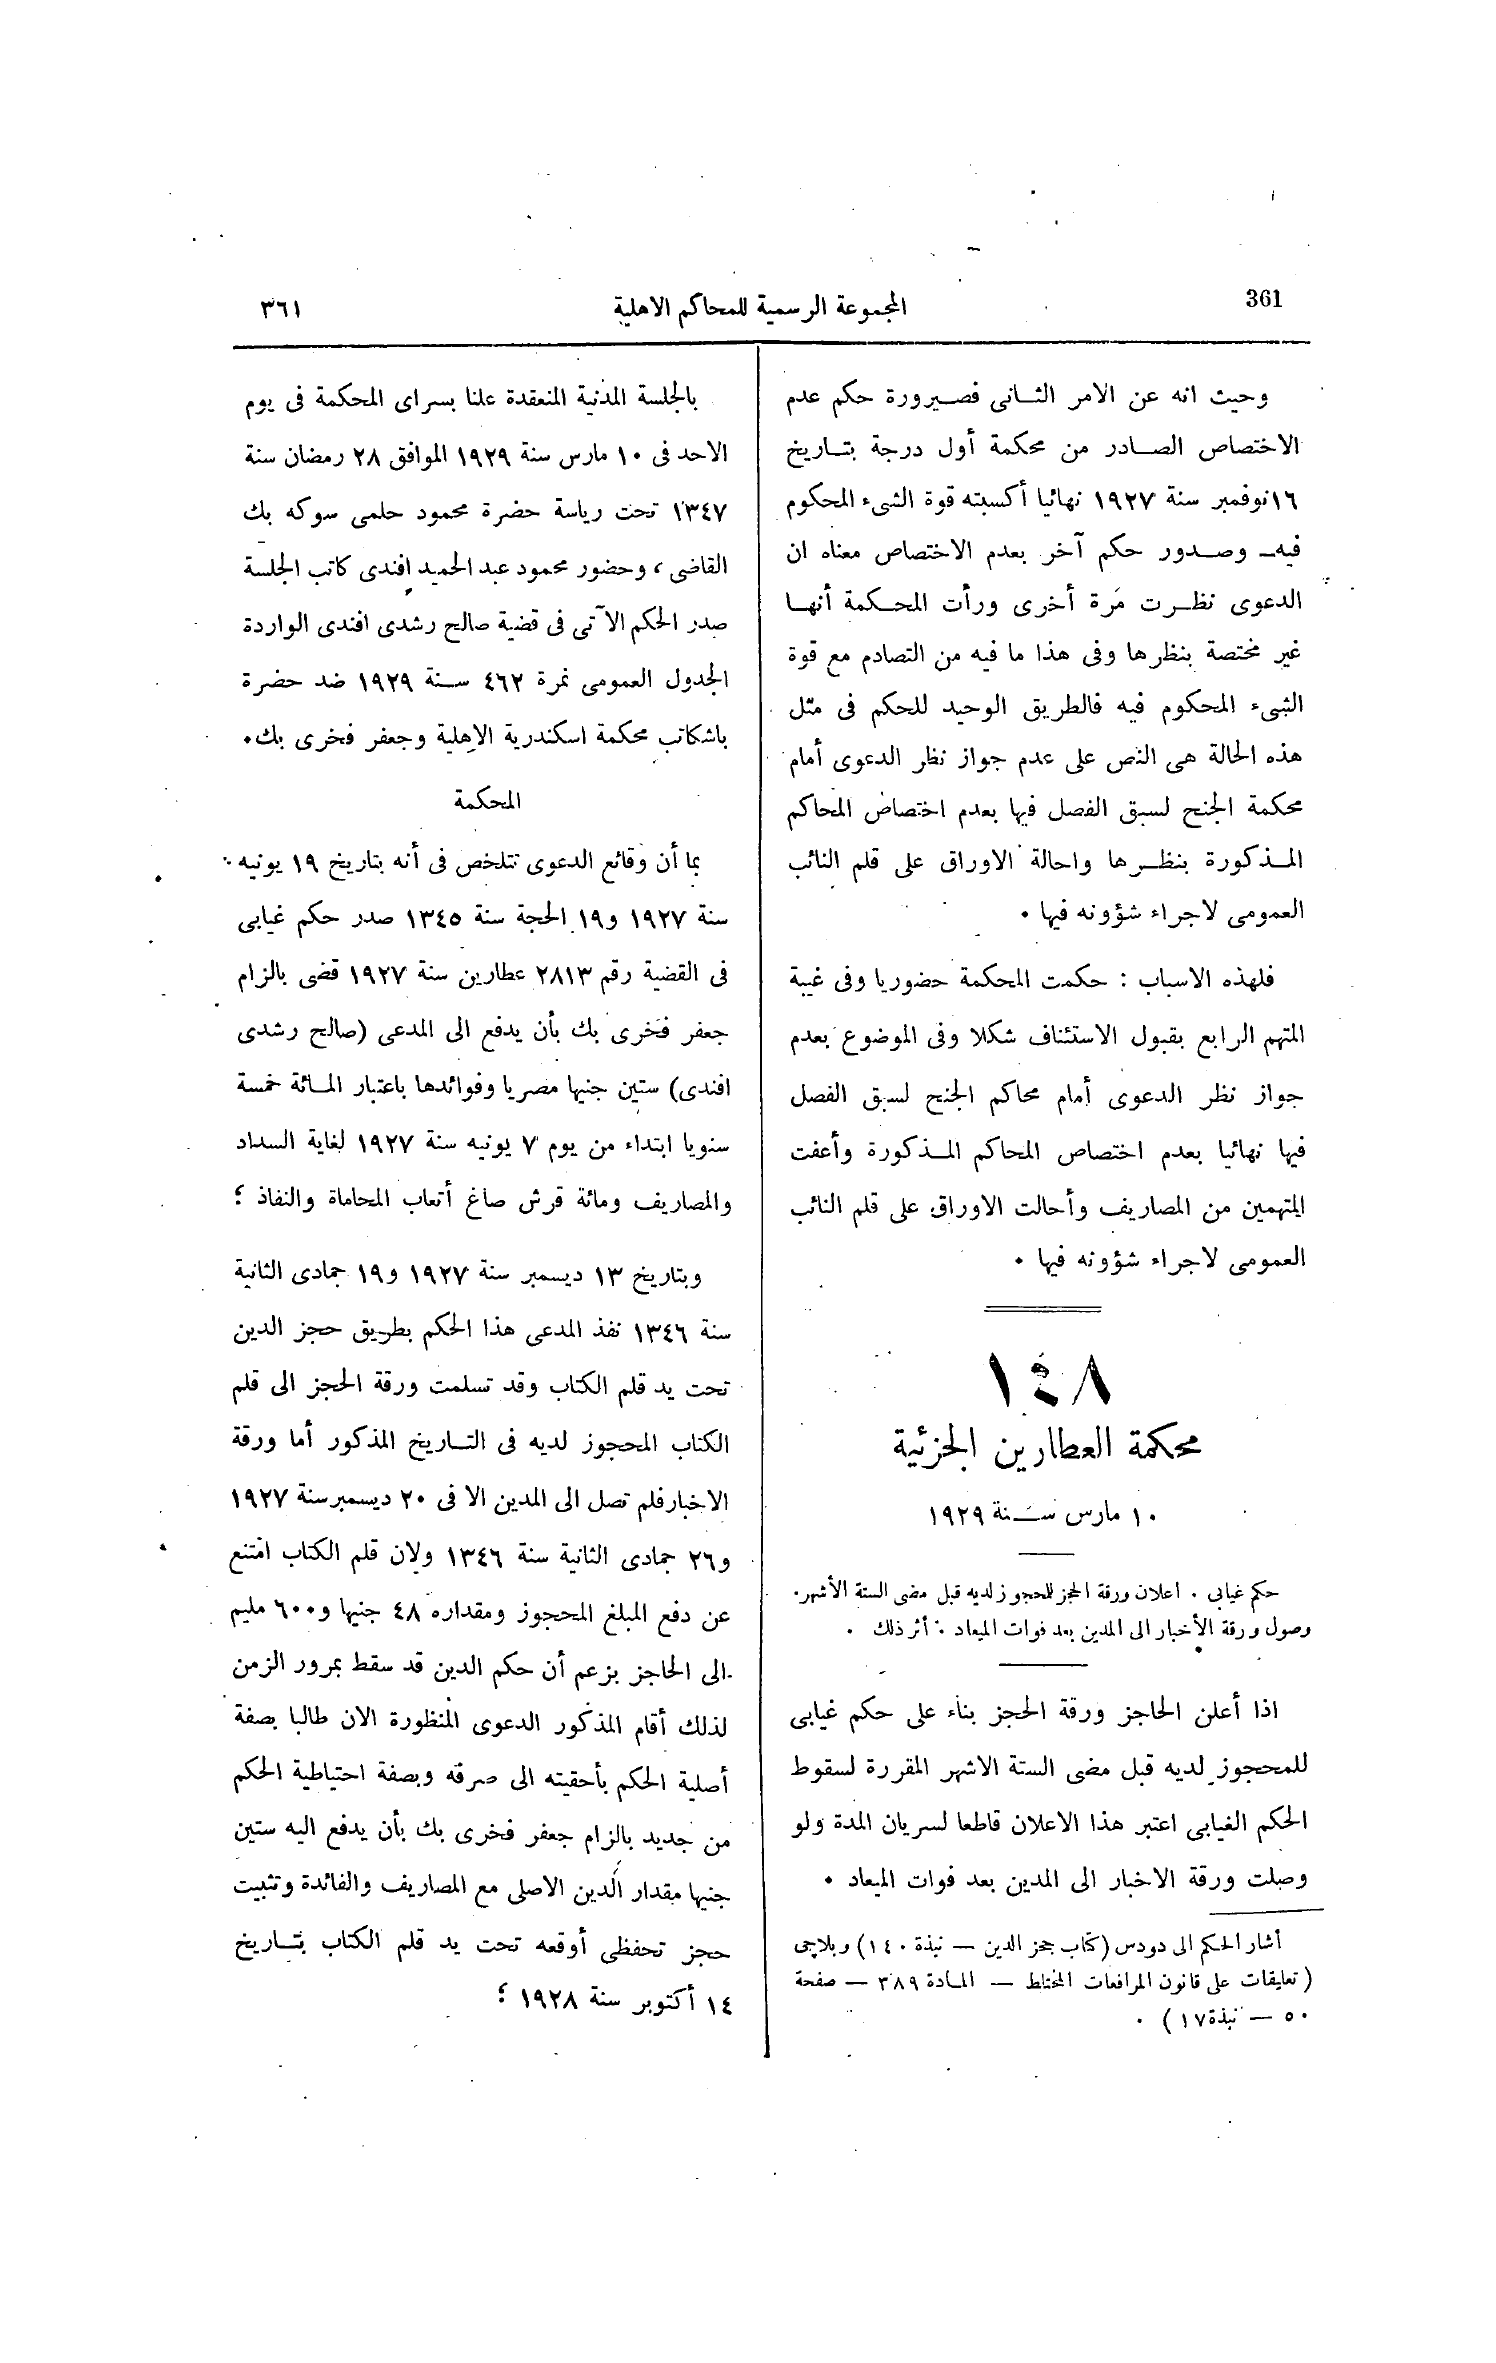 361
المجموعة الرسمية للمحاكم الاهلية
٣٦١
وحيث انه عن الامر الثانى فصيرورة حكم عدم
الاختصاص الصادر من محكمة أول درجة بتاريخ
١٦ نوفمبر سنة ١٩٢٧ نهائيا أكسبته قوة الشىء المحكوم
فيه ـ وصدور حكم آخر بعدم الاختصاص معناه ان
الدعوى نظرت مرة أخرى ورأت المحكمة أنها
غير مختصة بنظرها وفى هذا ما فيه من التصادم مع قوة
الشىء المحكوم فيه فالطريق الوحيد للحكم فى مثل
هذه الحالة هى النص على عدم جواز نظر الدعوى أمام
محكمة الجنح لسبق الفصل فيها بعدم اختصاص المحاكم
المذكورة بنظرها واحالة الاوراق على قلم النائب
العمومى لاجراء شؤونه فيها ٠
فلهذه الاسباب : حكمت المحكمة حضوريا وفى غيبة
المتهم الرابع بقبول الاستئناف شكلا وفى الموضوع بعدم
جواز نظر الدعوى أمام محاكم الجنح لسبق الفصل
فيها نهائيا بعدم اختصاص المحاكم المذكورة وأعفت
المتهمين من المصاريف وأحالت الاوراق على قلم النائب
العمومى لاجراء شؤونه فيها ٠
١٤٨
محكمة العطارين الجزئية
١٠ مارس سنة ١٩٢٩
حكم غيابى ٠ اعلان ورقة الحجز للمحجوز لديه قبل مضى الستة الأشهر٠
وصول ورقة الأخبار الى المدين بعد فوات الميعاد ٠ أثر ذلك ٠
اذا أعلن الحاجز ورقة الحجز بناء على حكم غيابى
للمحجوز لديه قبل مضى الستة الاشهر المقررة لسقوط
الحكم الغيابى اعتبر هذا الاعلان قاطعا لسريان المدة ولو
وصلت ورقة الاخبار الى المدين بعد فوات الميعاد ٠
أشار الحكم الى دودس (كتاب حجز الدين — نبذة ١٤٠) وبلاچى
(تعليقات على قانون المرافعات المختلط — المادة ٣٨٩ — صفحة
٥٠ — نبذة ١٧) ٠
بالجلسة المدنية المنعقدة علنا بسراى المحكمة فى يوم
الاحد فى ١٠ مارس سنة ١٩٢٩ الموافق ٢٨ رمضان سنة
١٣٤٧ تحت رياسة حضرة محمود حلمى سوكه بك
القاضى ، وحضور محمود عبد الحميد افندى كاتب الجلسة
صدر الحكم الآتى فى قضية صالح رشدى افندى الواردة
الجدول العمومى نمرة ٤٦٢ سنة ١٩٢٩ ضد حضرة
باشكاتب محكمة اسكندرية الاهلية وجعفر فخرى بك٠
المحكمة
بما أن وقائع الدعوى تتلخص فى أنه بتاريخ ١٩ يونيه
سنة ١٩٢٧ و١٩ الحجة سنة ١٣٤٥ صدر حكم غيابى
فى القضية رقم ٢٨١٣ عطارين سنة ١٩٢٧ قضى بالزام
جعفر فخرى بك بأن يدفع الى المدعى (صالح رشدى
افندى) ستين جنيها مصريا وفوائدها باعتبار المائة خمسة
سنويا ابتداء من يوم ٧ يونيه سنة ١٩٢٧ لغاية السداد
والمصاريف ومائة قرش صاغ أتعاب المحاماة والنفاذ ؛
وبتاريخ ١٣ ديسمبر سنة ١٩٢٧ و١٩ جمادى الثانية
سنة ١٣٤٦ نفذ المدعى هذا الحكم بطريق حجز الدين
تحت يد قلم الكتاب وقد تسلمت ورقة الحجز الى قلم
الكتاب المحجوز لديه فى التاريخ المذكور أما ورقة
الاخبار فلم تصل الى المدين الا فى ٢٠ ديسمبر سنة ١٩٢٧
و٢٦ جمادى الثانية سنة ١٣٤٦ ولان قلم الكتاب امتنع
عن دفع المبلغ المحجوز ومقداره ٤٨ جنيها و٦٠٠ مليم
الى الحاجز بزعم أن حكم الدين قد سقط بمرور الزمن
لذلك أقام المذكور الدعوى المنظورة الان طالبا بصفة
أصلية الحكم بأحقيته الى صرفه وبصفة احتياطية الحكم
من جديد بالزام جعفر فخرى بك بأن يدفع اليه ستين
جنيها مقدار الدين الاصلى مع المصاريف والفائدة وتثبيت
حجز تحفظى أوقعه تحت يد قلم الكتاب بتاريخ
١٤ أكتوبر سنة ١٩٢٨ ؛